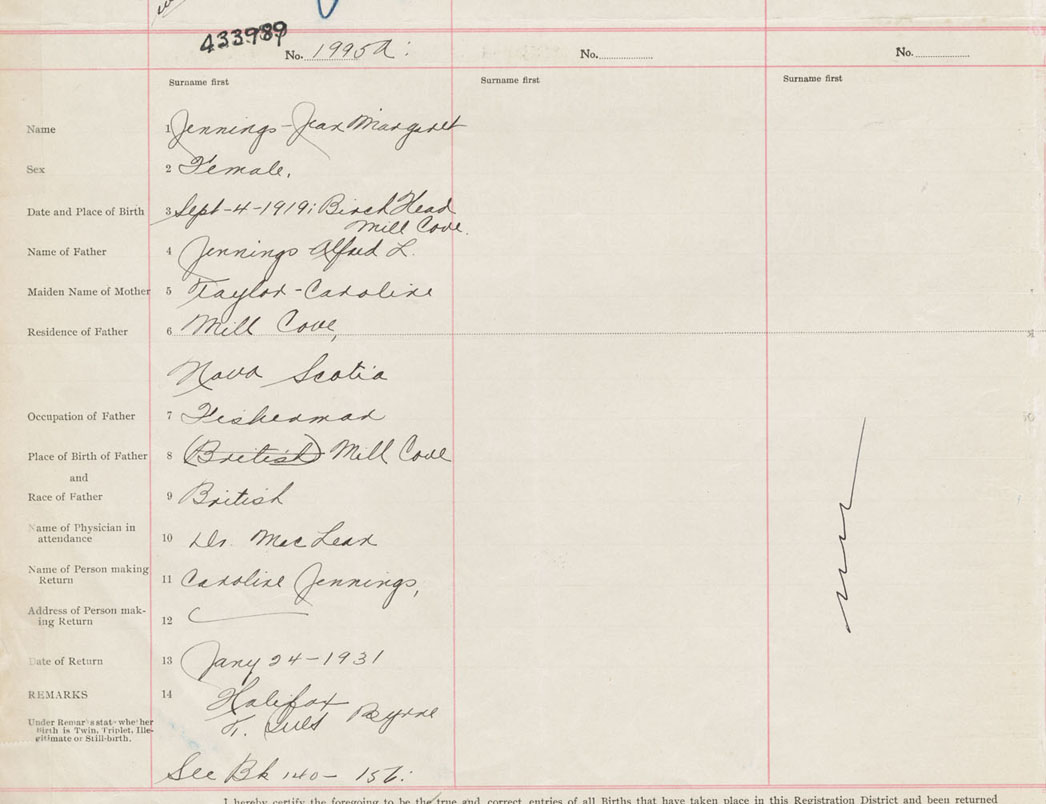 433989
No. 1995A: No. No.
Surname first Surname first Surname first
Name 1 Jennings - Jean Margaret
Sex 2 Female,
Date and Place of Birth 3 Sept-4-1919; Birch Head
Mill Cove.
Name of Father 4 Jennings Alfred L.
Maiden Name of Mother 5 Taylor - Caroline
Residence of Father 6 Mill Cove,
Nova Scotia
Occupation of Father 7 Fisherman
Place of Birth of Father 8 (British) Mill Cove
and
Race of Father 9 British
Name of Physician in
attendance 10 Dr. MacLean
Name of Person making
Return 11 Caroline Jennings,
Address of Person mak-
ing Return 12
Date of Return 13 Jany 24-1931
REMARKS 14 Halifax
Under Remarks state whether
Birth is Twin, Triplet, Ille-
gitimate or Still-birth.
Byrne
See Bk 140- 156:
I hereby certify the foregoing to be the true and correct entries of all Births that have taken place in this Registration District and been returned